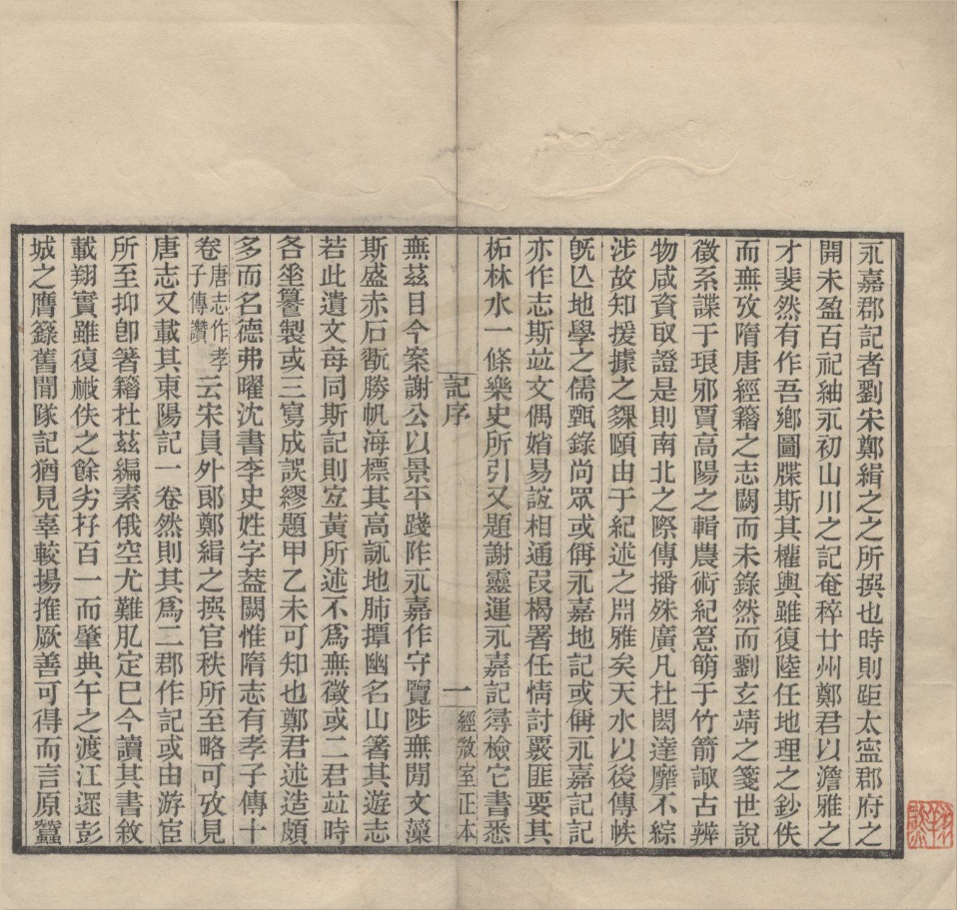 永嘉郡記者劉宋鄭緝之之所撰也時則歫太寍郡府之
開未盈百祀紬永初山川之記奄稡廿州鄭君以澹雅之
才斐然有作吾鄕圖牒斯其權輿雖復陸任地理之鈔佚
而無攷隋唐經籍之志闕而未錄然而劉玄靖之箋世說
徵系諜于琅邪賈高陽之輯農術紀笣箭于竹箭諏古辨
物咸資取證是則南北之際傳播殊廣凡杜閎達靡不綜
涉故知援據之夥頤由于紀述之淵雅矣天水以後傳帙
旣亾地學之儒甄錄尚眾或偁永嘉地記或偁永嘉記記
亦作志斯竝文偶媘易諠相通叚楬署任情討覈匪要其
柘林水一條樂史所引又題謝靈運永嘉記尋檢它書悉
記序 一 經㣲室正本
無茲目今案謝公以景平踐阼永嘉作守覽陟無閒文藻
斯盛赤石翫勝帆海標其高詠地肺撢幽名山箸其遊志
若此遺文每同斯記則宐黃所述不爲無徵或二君竝時
各垩纂製或三寫成誤繆題甲乙未可知也鄭君述造頗
多而名德弗曜沈書李史姓字葢闕惟隋志有孝子傳十
卷唐志作孝子傳讚云宋員外郎鄭緝之撰官秩所至略可攷見
唐志又載其東陽記一卷然則其爲二郡作記或由游宦
所至抑卽箸籍杜茲編素俄空尤難肊定巳今讀其書敘
載翔實雖復㩻佚之餘劣存百一而肇典午之渡江遝彭
城之膺籙舊聞隊記猶見辜較揚搉厥善可得而言原蠶